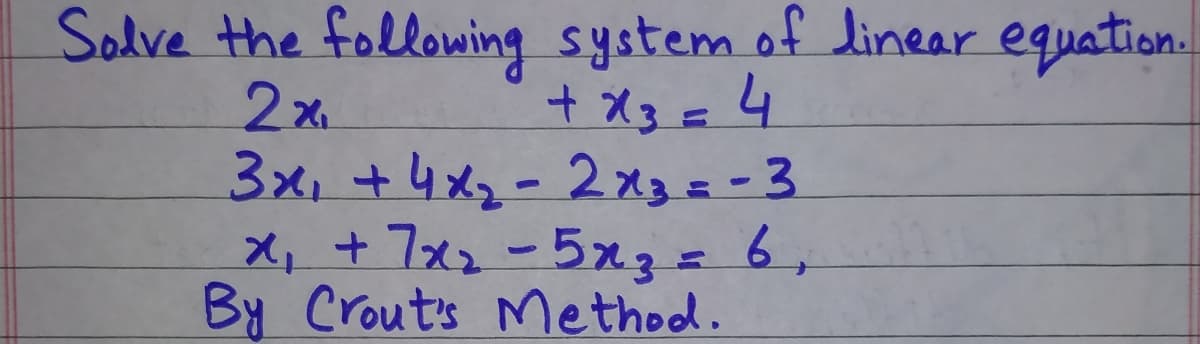 Solve the following system of linear equation.
2x₁ + x₃ = 4
3x₁ + 4x₂ - 2x₃ = -3
x₁ + 7x₂ - 5x₃ = 6,
By Crout's Method.